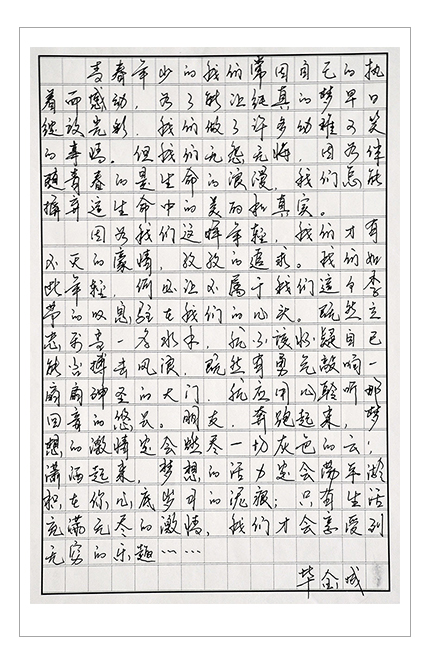 青春年少的我们常因自己的执
着而感动，为了能让纯真的梦早日
绽放光彩，我们做了许多幼稚可笑
的事吗。但我们无怨无悔，因为伴
随青春的是生命的浪漫，我们怎能
摒弃这生命中的美丽和真实。
因为我们这样年轻，我们才有
不灭的豪情，孜孜的追求。我们如
此年轻，何必让不属于我们这个季
节的叹息驻在我们的心头。既然立
志采香一名水手，就不该怀疑自己
能否搏击风浪，既然有勇气敲响一
扇扇神圣的大门，就应用心聆听那
回音的悠长。朋友，奔跑起来，梦
想的激情定会燃尽一切灰色的云；
潇洒起来，梦想的活力定会荡平淤
积在你心底岁月的泥痕；只有生活
充满无尽的激情，我们才会享受到
无穷的乐趣……
毕金成